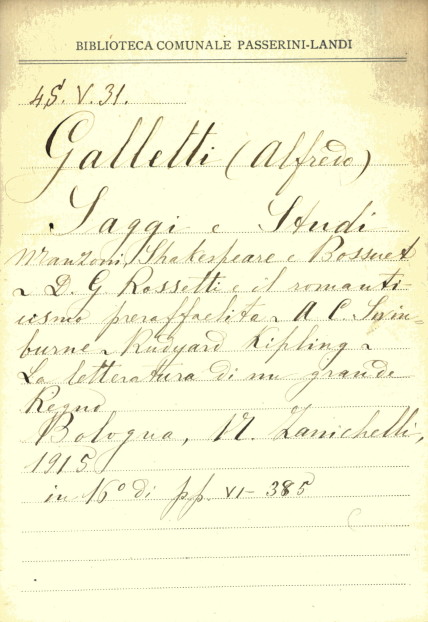 BIBLIOTECA COMUNALE PASSERINI-LANDI
4S. V. 31.
Galletti (Alfredo)
Saggi e Studi
Manzoni, Shakespeare e Bossuet
~ D. G. Rossetti e il romanti-
cismo preraffaelita ~ A C. Swin-
burne ~ Rudyard Kipling ~
La letteratura di un grande
Regno
Bologna, N. Zanichelli,
1915
in 16° di pp. VI - 385